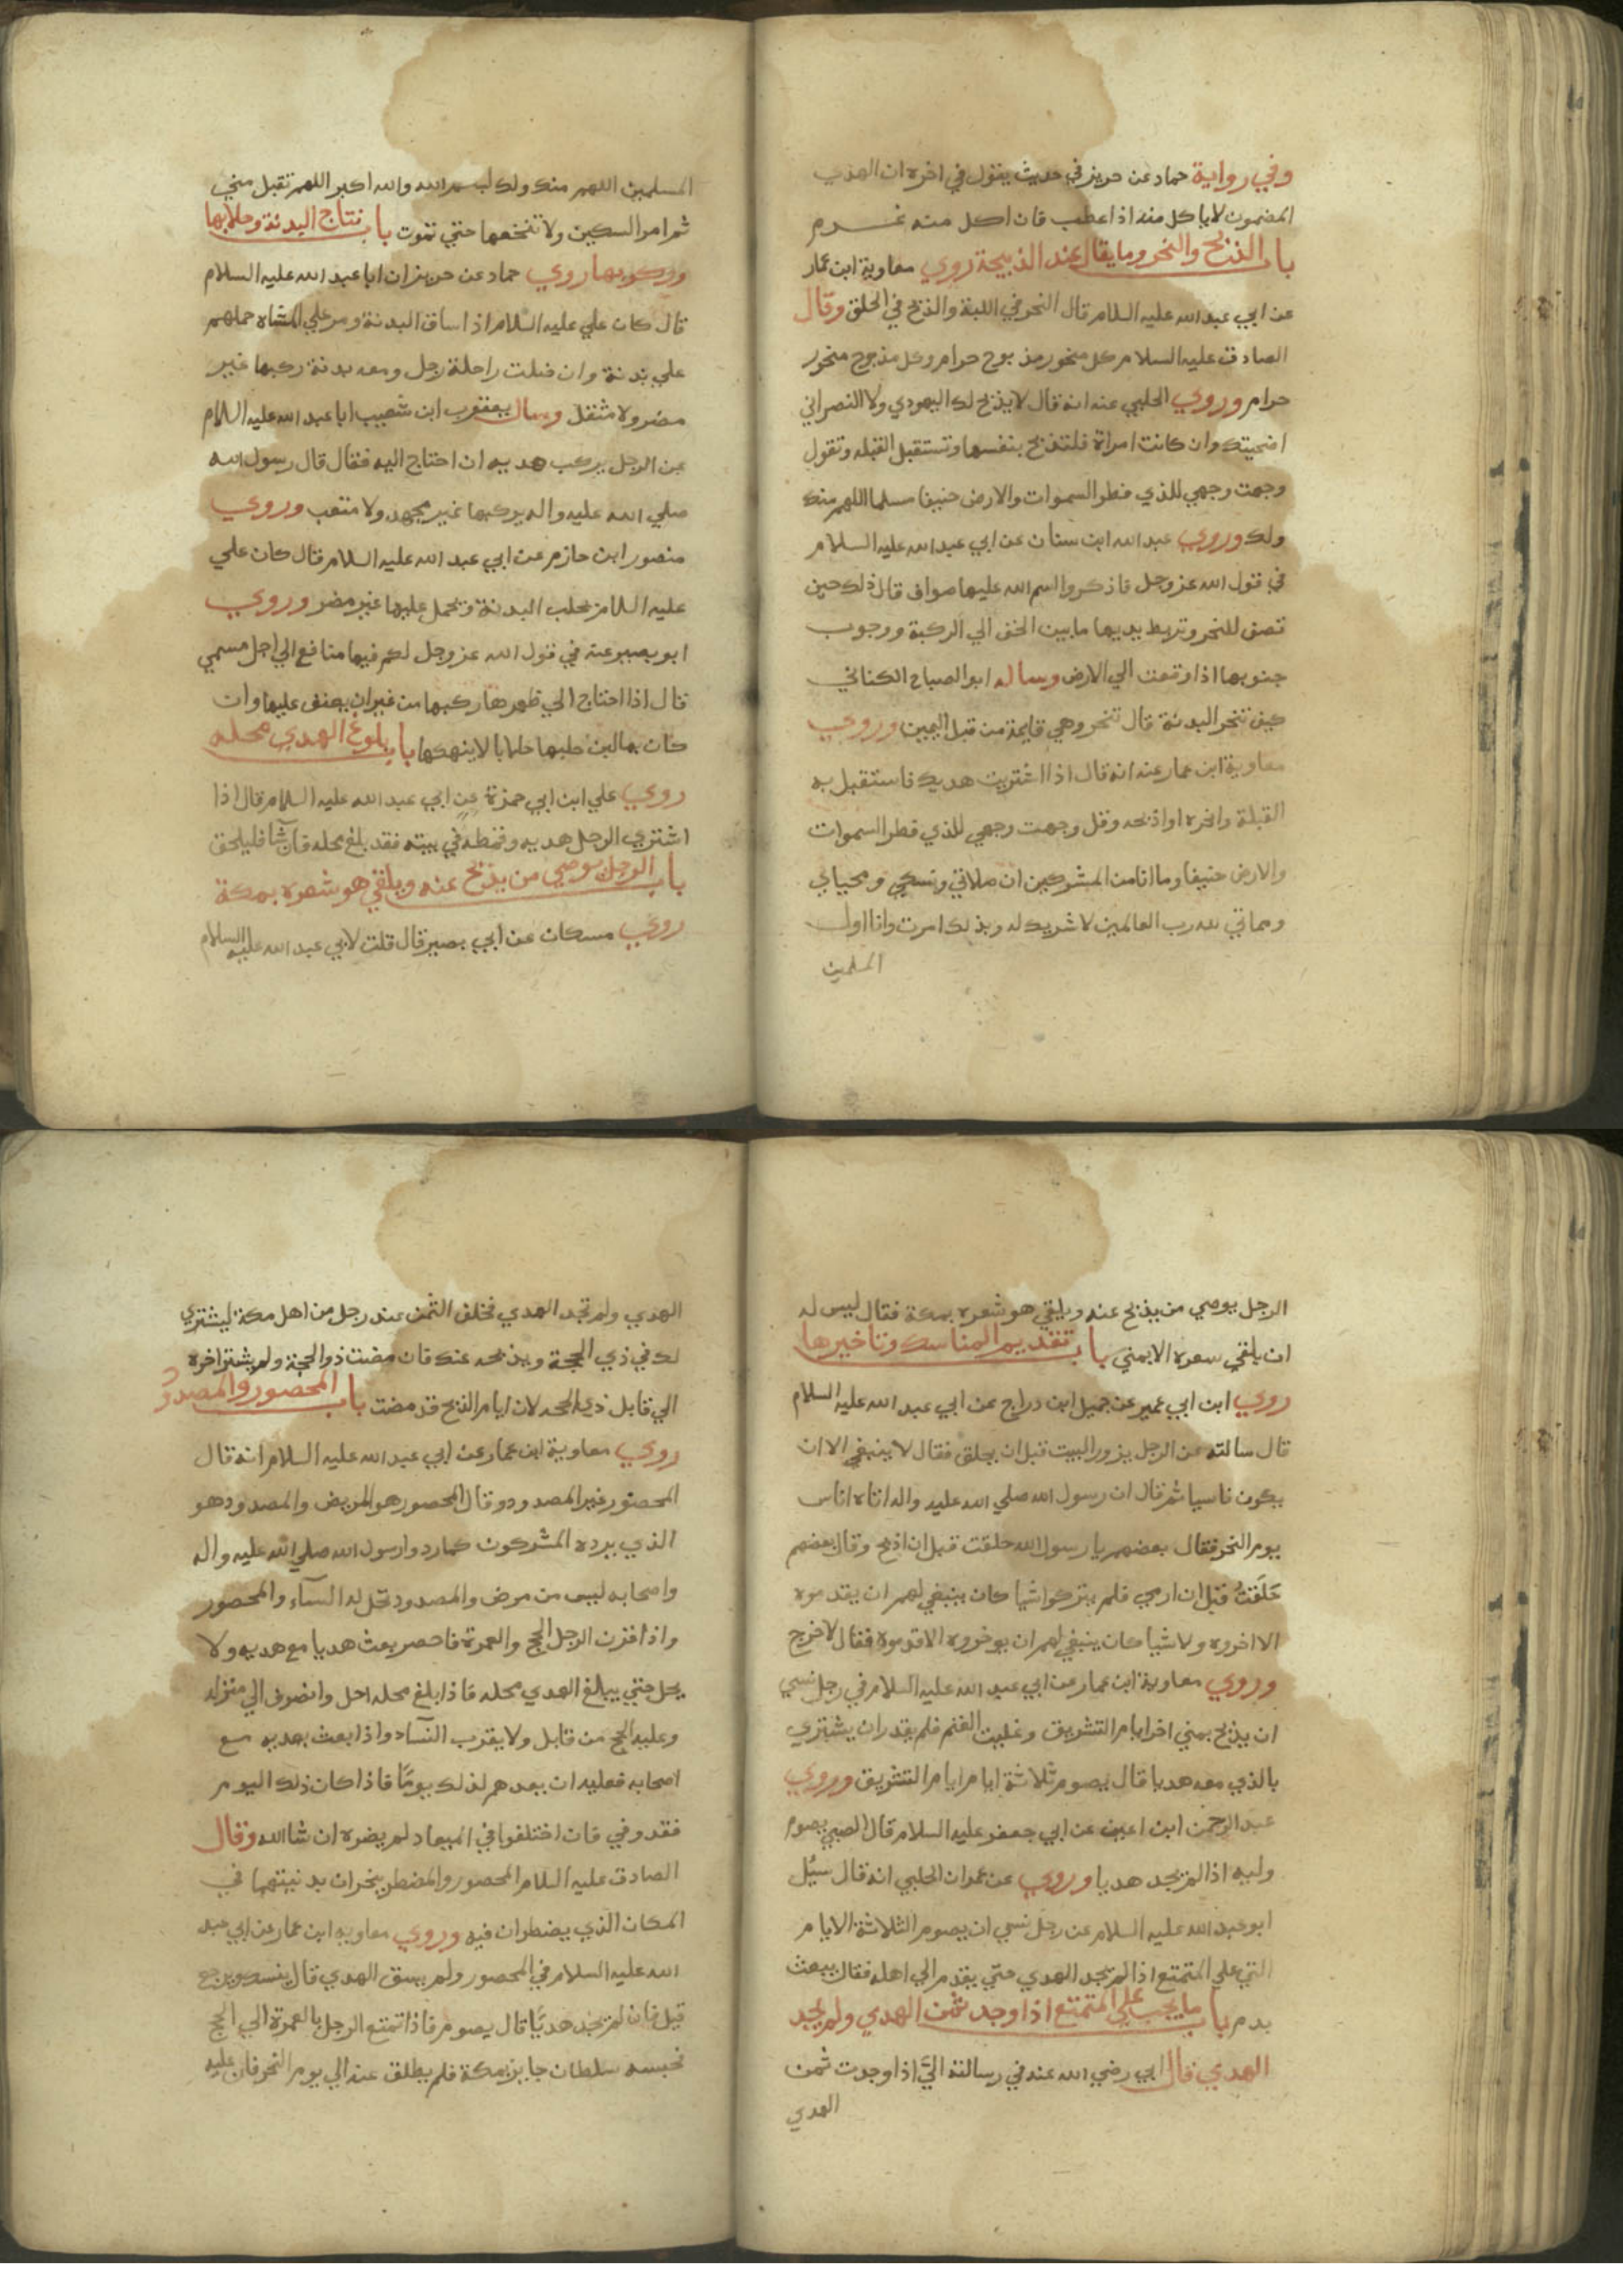 وفي رواية حماد عن حريز في حديث يقول في اخره ان الهدي
المضمون لا ياكل منه اذا عطب فان اكل منه غرم
باب الذبح والنحر وما يقال عند الذبيحة روي معاوية ابن عمار
عن ابي عبد الله عليه السلام قال النحر في اللبة والذبح في الحلق وقال
الصادق عليه السلام كل منحور مذبوح حرام وكل مذبوح منحور
حرام وروي الحلبي عنه انه قال لا يذبح لك اليهودي ولا النصراني
اضحيتك وان كانت امراة فلتذبح بنفسها وتستقبل القبله وتقول
وجهت وجهي للذي فطر السموات والارض حنيفا مسلما اللهم منك
ولك وروي عبد الله ابن سنان عن ابي عبد الله عليه السلام
في قول الله عز وجل فاذكروا اسم الله عليها صواف قال ذلك حين
تصف للنحر وتربط يديها ما بين الخف الي الركبة ووجوب
جنوبها اذا وقعت الي الارض وساله ابو الصباح الكناني
كيف تنحر البدنة قال تنحر وهي قايمة من قبل اليمين وروي
معاوية ابن عمار عنه انه قال اذا اشتريت هديك فاستقبل به
القبلة وانحره او اذبحه وقل وجهت وجهي للذي فطر السموات
والارض حنيفا وما انا من المشركين ان صلاتي ونسكي ومحياي
ومماتي لله رب العالمين لا شريك له وبذلك امرت وانا اول
المسلمين
المسلمين اللهم منك ولك بسم الله والله اكبر اللهم تقبل مني
ثم امر السكين ولا تنخعها حتي تموت باب نتاج البدنة وحلابها
وركوبها روي حماد عن حريز ان ابا عبد الله عليه السلام
قال كان علي عليه السلام اذا ساق البدنة ومر علي المشاه حملهم
علي بدنة وان ضلت راحلة رجل ومعه بدنة ركبها غير
مضر ولا مثقل وسال يعقوب ابن شعيب ابا عبد الله عليه السلام
عن الرجل يركب هديه ان احتاج اليه فقال قال رسول الله
صلي الله عليه واله يركبها غير مجهد ولا متعب وروي
منصور ابن حازم عن ابي عبد الله عليه السلام قال كان علي
عليه السلام يحلب البدنة ويحمل عليها غير مضر وروي
ابو بصير عنه في قول الله عز وجل لكم فيها منافع الي اجل مسمي
قال اذا احتاج الي ظهرها ركبها من غير ان يعنف عليها وان
كان بها لبن حلبها حلابا لا ينهكها باب بلوغ الهدي محله
روي علي ابن ابي حمزة عن ابي عبد الله عليه السلام قال اذا
اشتري الرجل هديه وقمطه في بيته فقد بلغ محله فان شا فليحلق
باب الرجل يوصي من يذبح عنه ويلقي هو شعره بمكة
روي مسكان عن ابي بصير قال قلت لابي عبد الله عليه السلام
الرجل يوصي من يذبح عنه ويلقي هو شعره بمكة فقال ليس له
ان يلقي سعره الا بمني باب تقديم المناسك وتاخيرها
روي ابن ابي عمير عن جميل ابن دراج عن ابي عبد الله عليه السلام
قال سالته عن الرجل يزور البيت قبل ان يحلق فقال لا ينبغي الا ان
يكون ناسيا ثم قال ان رسول الله صلي الله عليه واله اتاه اناس
يوم النحر فقال بعضهم يا رسول الله حلقت قبل ان اذبح وقال بعضهم
حَلَقتُ قبل ان ارمي فلم يتركوا شيا كان ينبغي لهم ان يقدموه
الا اخروه ولا شيا كان ينبغي لهم ان يوخروه الا قدموه فقال لا خرج
وروي معاوية ابن عمار عن ابي عبد الله عليه السلام في رجل نسي
ان يذبح بمني اخر ايام التشريق وغلبت الغنم فلم يقدر ان يشتري
بالذي معه هديا قال يصوم ثلاثة ايام ايام التشريق وروي
عبد الرحمن ابن اعين عن ابي جعفر عليه السلام قال الصبي يصوم
وليه اذا لم يجد هديا وروي عن عمران الحلبي انه قال سيُل
ابو عبد الله عليه السلام عن رجل نسي ان يصوم الثلاثة الايام
التي علي المتمتع اذا لم يجد الهدي حتي يقدم الي اهله فقال يبعث
بدم باب ما يجب علي المتمتع اذا وجد ثمن الهدي ولم يجد
الهدي قال ابي رضي الله عنه في رسالته اليَّ اذا وجدت ثمن
الهدي
الهدي ولم تجد الهدي فخلف الثمن عند رجل من اهل مكة ليشتري
لك في ذي الحجة ويذبحه عنك فان مضت ذو الحجة ولم يشتر اخره
الي قابل ذي الحجه لان ايام الذبح قد مضت باب المحصور والمصدود
روي معاوية ابن عمار عن ابي عبد الله عليه السلام انه قال
المحصور غير المصدود وقال المحصور هو المريض والمصدود هو
الذي يرده المشركون كما ردوا رسول الله صلي الله عليه واله
واصحابه ليس من مرض والمصدود تحل له النسآء والمحصور
واذا قرن الرجل الحج والعمرة فاحصر بعث هديا مع هديه ولا
يحل حتي يبلغ الهدي محله فاذا بلغ محله احل وانصرف الي منزله
وعليه الحج من قابل ولا يقرب النسآء واذا بعث بهديه مع
اصحابه فعليه ان يعدهم لذلك يومًا فاذا كان ذلك اليوم
فقد وفي فان اختلفوا في الميعاد لم يضره ان شا الله وقال
الصادق عليه السلام المحصور والمضطر ينحران بدنيتهما في
المكان الذي يضطران فيه وروي معاويه ابن عمار عن ابي عبد
الله عليه السلام في المحصور ولم يسق الهدي قال ينسك ويرجع
قيل فان لم يجد هديًا قال يصوم فاذا تمتع الرجل بالعمرة الي الحج
فحبسه سلطان جاير بمكة فلم يطلق عنه الي يوم النحر فان عليه